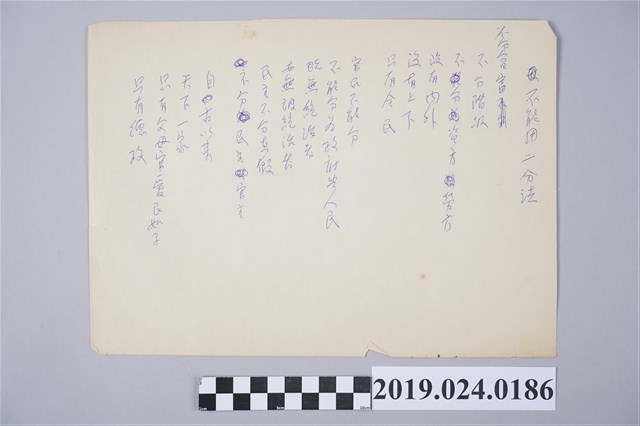 不能用二分法
不分官
不分階級
不分資方勞方
沒有內外
沒有上下
只有全民
官民不能分
不能分為政府與人民
既無統治者
亦無被統治者
民主不分真假
不分民主官主
自古以來
天下一家
只有父母官愛民如子
只有德政
2019.024.0186